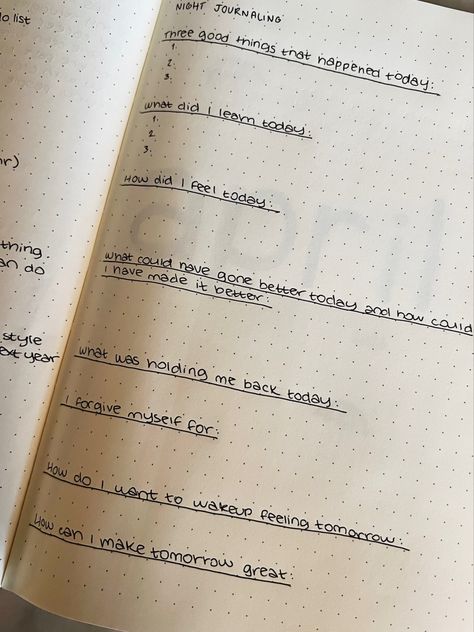 o list
r)
thing.
an do
style
ext year
NIGHT JOURNALING
Three good things that happened today:
1.
2.
3.
What did I learn today:
1.
2
3.
How did I feel today:
april
what could have gone better today and how could
I have made it better:
what was holding me back today:
I forgive myself for:
How do I want to wakeup feeling tomorrow:
How can I make tomorrow great: